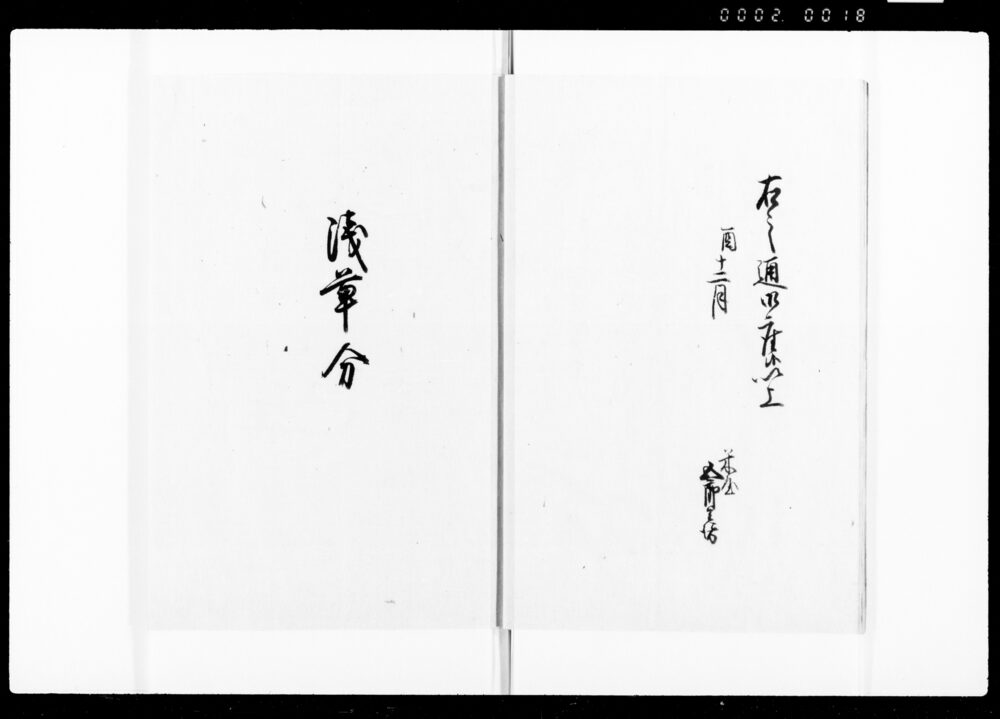 0002 0018
右之通御座候以上
酉十二月
淺草分